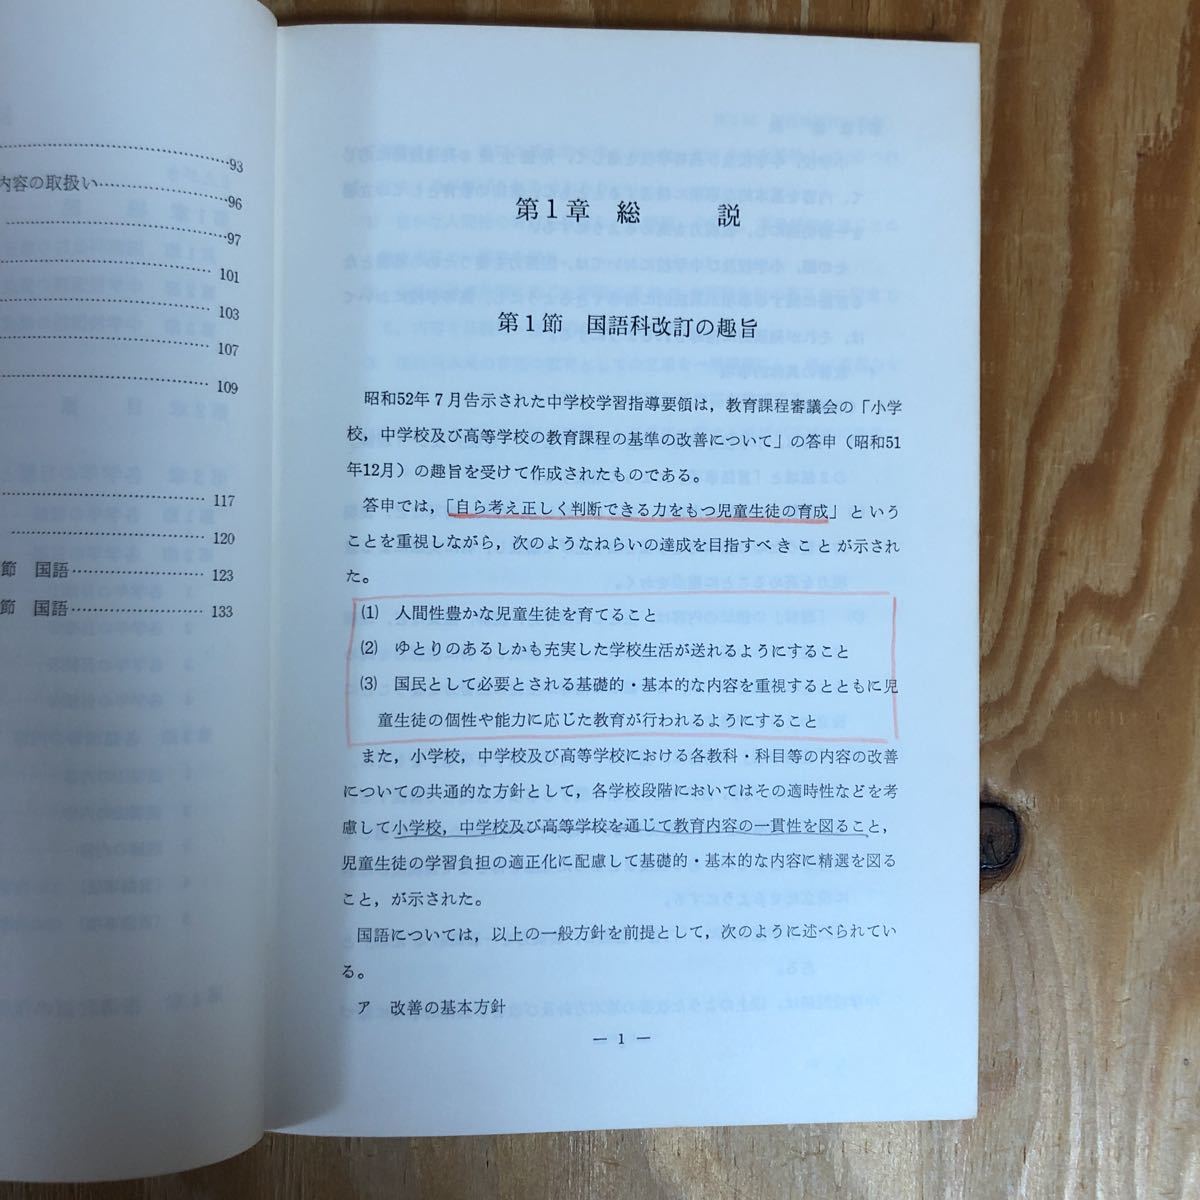 93
内容の取扱い 96
97
101
103
107
109
117
120
節 国語 123
節 国語 133
第1章 総 説
第1節 国語科改訂の趣旨
昭和52年7月告示された中学校学習指導要領は,教育課程審議会の「小学
校,中学校及び高等学校の教育課程の基準の改善について」の答申(昭和51
年12月)の趣旨を受けて作成されたものである。
答申では,「自ら考え正しく判断できる力をもつ児童生徒の育成」という
ことを重視しながら,次のようなねらいの達成を目指すべきことが示され
た。
(1) 人間性豊かな児童生徒を育てること
(2) ゆとりのあるしかも充実した学校生活が送れるようにすること
(3) 国民として必要とされる基礎的・基本的な内容を重視するとともに児
童生徒の個性や能力に応じた教育が行われるようにすること
また,小学校,中学校及び高等学校における各教科・科目等の内容の改善
についての共通的な方針として,各学校段階においてはその適時性などを考
慮して小学校,中学校及び高等学校を通じて教育内容の一貫性を図ること,
児童生徒の学習負担の適正化に配慮して基礎的・基本的な内容に精選を図る
こと,が示された。
国語については,以上の一般方針を前提として,次のように述べられてい
る。
ア 改善の基本方針
— 1 —